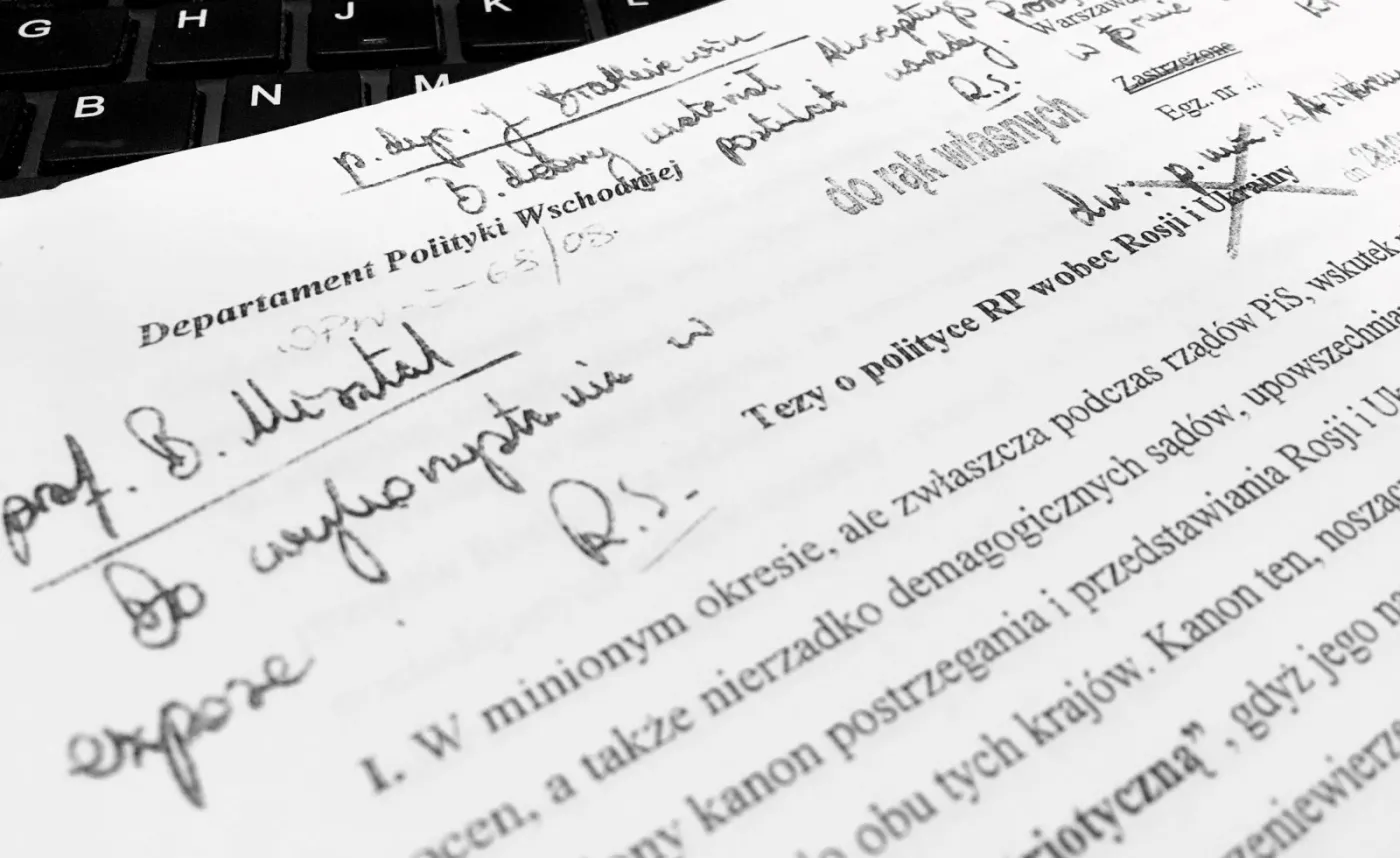 G H J K L
B N M
p. dyr. J. Bratkiewicz
B. dobry materiał Akceptuję
postulat narady.
R.S.
w
Warszawa
Zastrzeżone
Egz. nr
do rąk własnych
Departament Polityki Wschodniej
68/08.
prof. B. Misztal
Do wykorzystania w
expose.
R.S.
Tezy o polityce RP wobec Rosji i Ukrainy
I. W minionym okresie, ale zwłaszcza podczas rządów PiS, wskutek
ocen, a także nierzadko demagogicznych sądów, upowszechnia
ony kanon postrzegania i przedstawiania Rosji i Uk
do obu tych krajów. Kanon ten, nosząc
riotyczną", gdyż jego na
zeniewierze